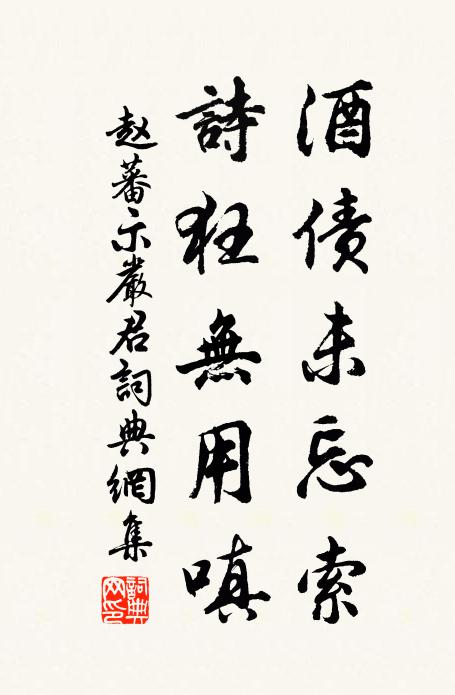 酒債未忘索
詩狂無用嗔
赵蕃示嚴君詞典網集
詞典网印